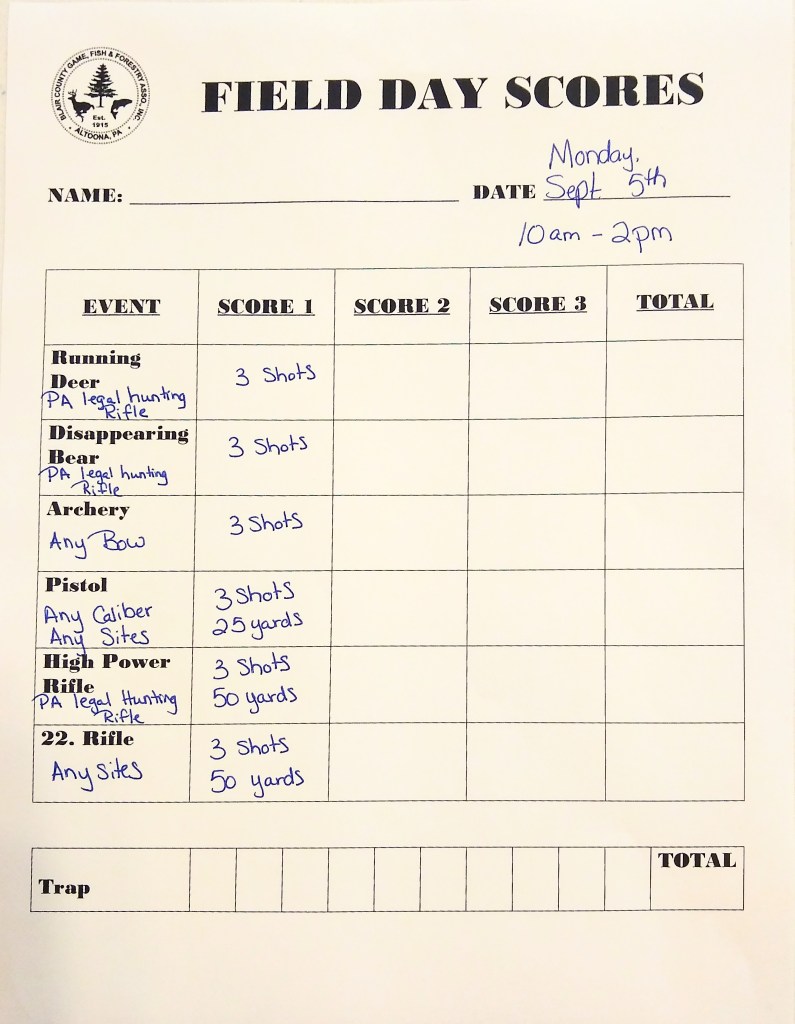 BLAIR COUNTY GAME, FISH & FORESTRY ASSO. INC.
Est.
1915
• ALTOONA, PA •
FIELD DAY SCORES
Monday,
NAME: DATE Sept 5th
10am - 2pm
EVENT SCORE 1 SCORE 2 SCORE 3 TOTAL
Running
Deer
3 Shots
PA legal hunting
Rifle
Disappearing
Bear
3 Shots
PA legal hunting
Rifle
Archery
3 Shots
Any Bow
Pistol
3 Shots
Any Caliber
25 yards
Any Sites
High Power
3 Shots
Rifle
50 yards
PA legal Hunting
Rifle
22. Rifle
3 Shots
Any Sites
50 yards
TOTAL
Trap